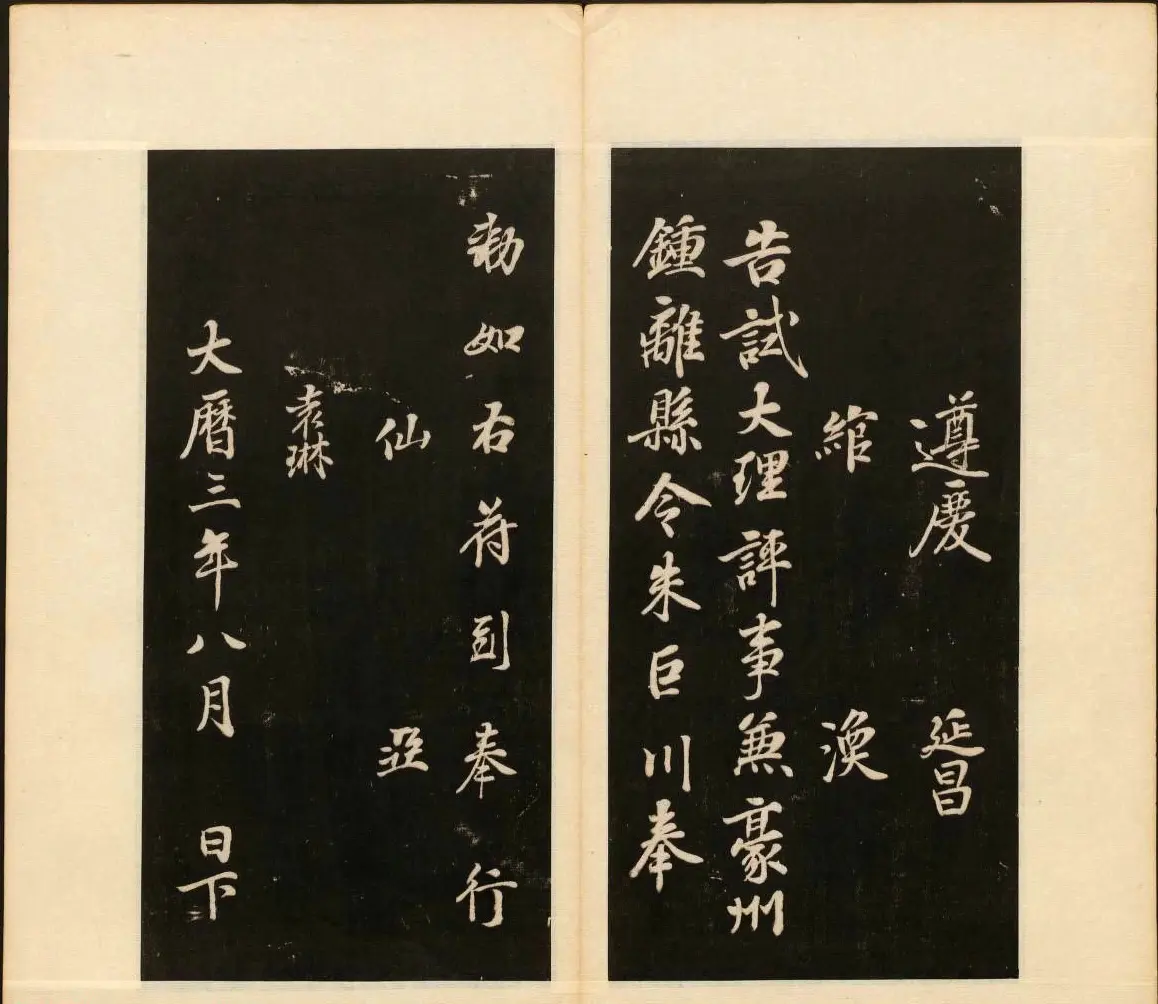 遵慶 延昌
綰 渙
告試大理評事兼豪州
鍾離縣令朱巨川奉
勅如右符到奉行
仙 亞
袁琳
大曆三年八月 日下